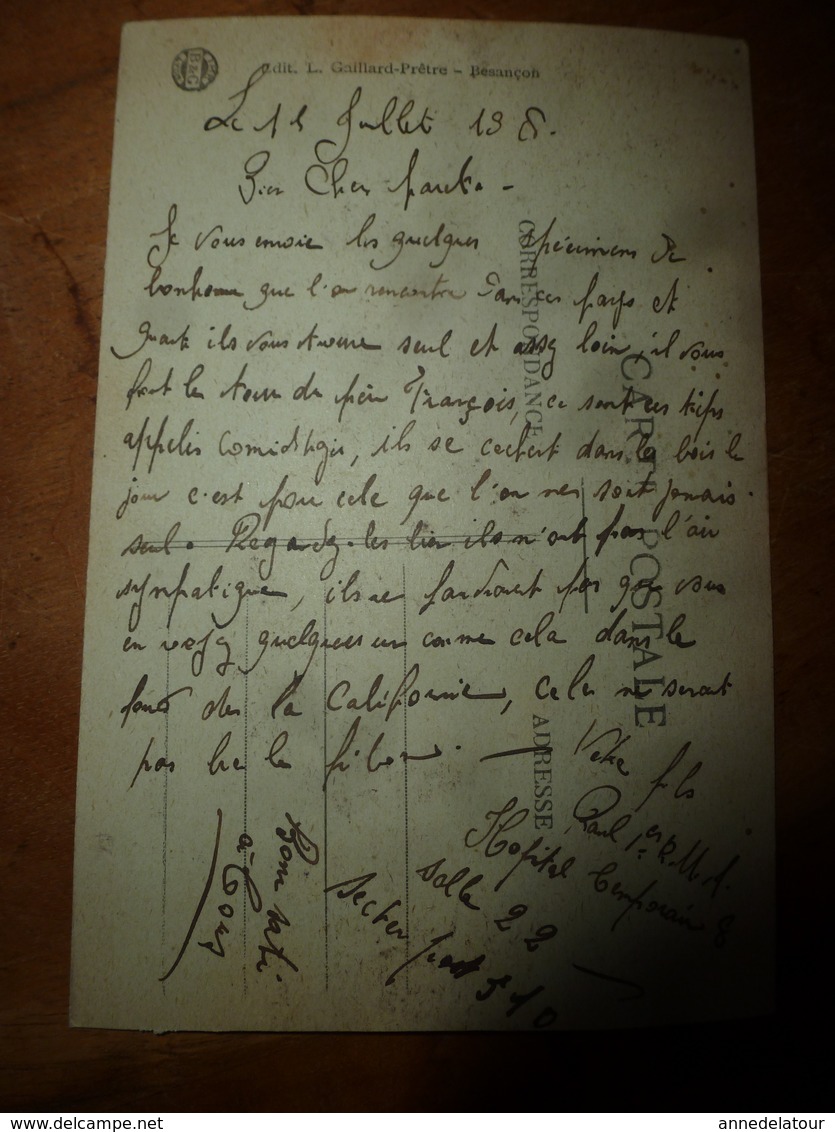 Edit. L. Gaillard-Prêtre - Besançon
B&G
CARTE POSTALE
CORRESPONDANCE
ADRESSE
Le 15 Juillet 1918.
Bien Cher parents -
Je vous envoie les quelques spécimens de
bonhomme que l'on rencontre dans ces pays et
quant ils vous trouve seul et assez loin, il vous
font le tour du père François, ce sont ces tips
appelés Comidtagis, ils se cachent dans les bois le
jour c'est pour cela que l'on ne sort jamais
seul. Regardez-les bien ils n'ont pas l'air
sympatique, ils ne faudrait pas que vous
en voyez quelques un comme cela dans le
fond de la Californie, cela ne serait
pas bien le filon.
Votre fils
Paul 1er R.M.A.
Hopital temporaire 8
salle 22
secteur post 510
Bonne santé
à tous
annedelatour